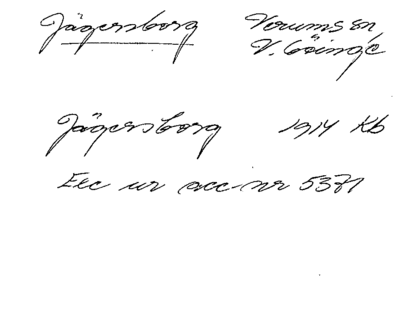 Jägersborg Verums sn
V. Göinge
Jägersborg 1914 Kb
Exc ur acc-nr 5371